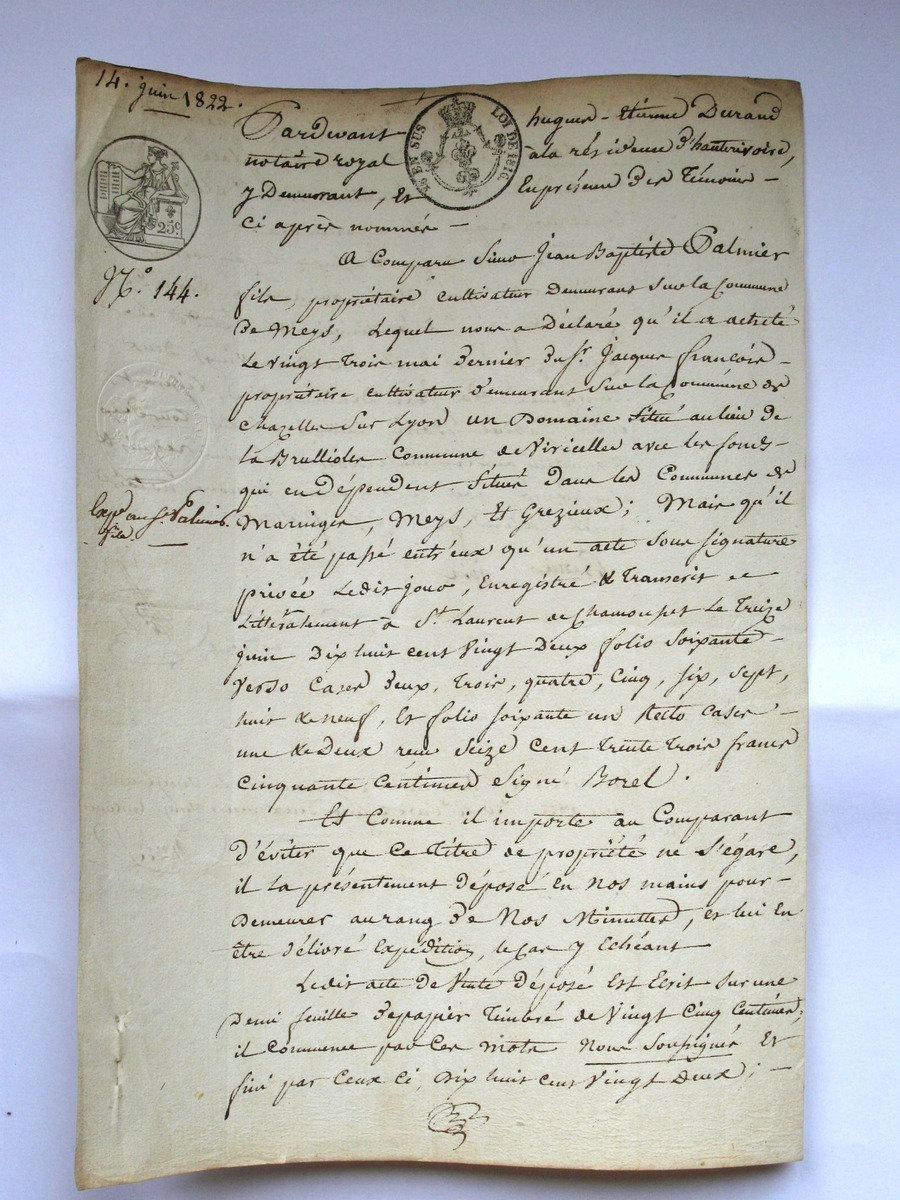 14. juin 1822.
Pardevant hugues-étienne Durand
notaire royal à la résidence d'hauterivoire,
y Demeurant, et En présence des Témoins -
Ci après nommés -
5 EN SUS LOI DE 1816
25c.
N.o 144.
A Comparu Jean Baptiste Palmier
fils, propriétaire cultivateur Demeurant sur la Commune
de Meys, Lequel nous a Déclaré qu'il a acheté
Le vingt trois mai dernier du Sr. Jacques françois -
propriétaire cultivateur demeurant sur la Commune de
Chazelles Sur Lyon un Domaine situé au lieu de
la Brulliole Commune de Viricelle avec les fonds -
qui en Dépendent situés Dans les Communes de
Maringes, Meys, Et Grezieux; Mais qu'il
n'a été passé entr'eux qu'un acte Sous signature
privée Ledit jour, Enregistré & Transcrit
Littéralement à St. Laurent de Chamousset Le Treize
juin Dix huit cent Vingt Deux folio Soixante -
Verso Cases deux, trois, quatre, Cinq, six, sept,
huit & neuf, et folio soixante un Recto cases -
une & Deux reçu Seize Cent trente trois francs
Cinquante Centimes Signé Borel.
Expon au Sr. Palmier
fils.
Et Comme il importe au Comparant
D'éviter que Ce titre de propriété ne s'égare,
il l'a présentement déposé En nos mains pour -
Demeurer au rang de Nos Minutes, et lui En
être délivré Expédition, le Cas y Echéant
Ledit acte de Vente déposé Est Ecrit sur une
Demi feuille de papier Timbré de Vingt Cinq Centimes,
il Commence par Ces mots Nous Soussignés Et
fini par Ceux Ci, Dix huit cent Vingt Deux; -